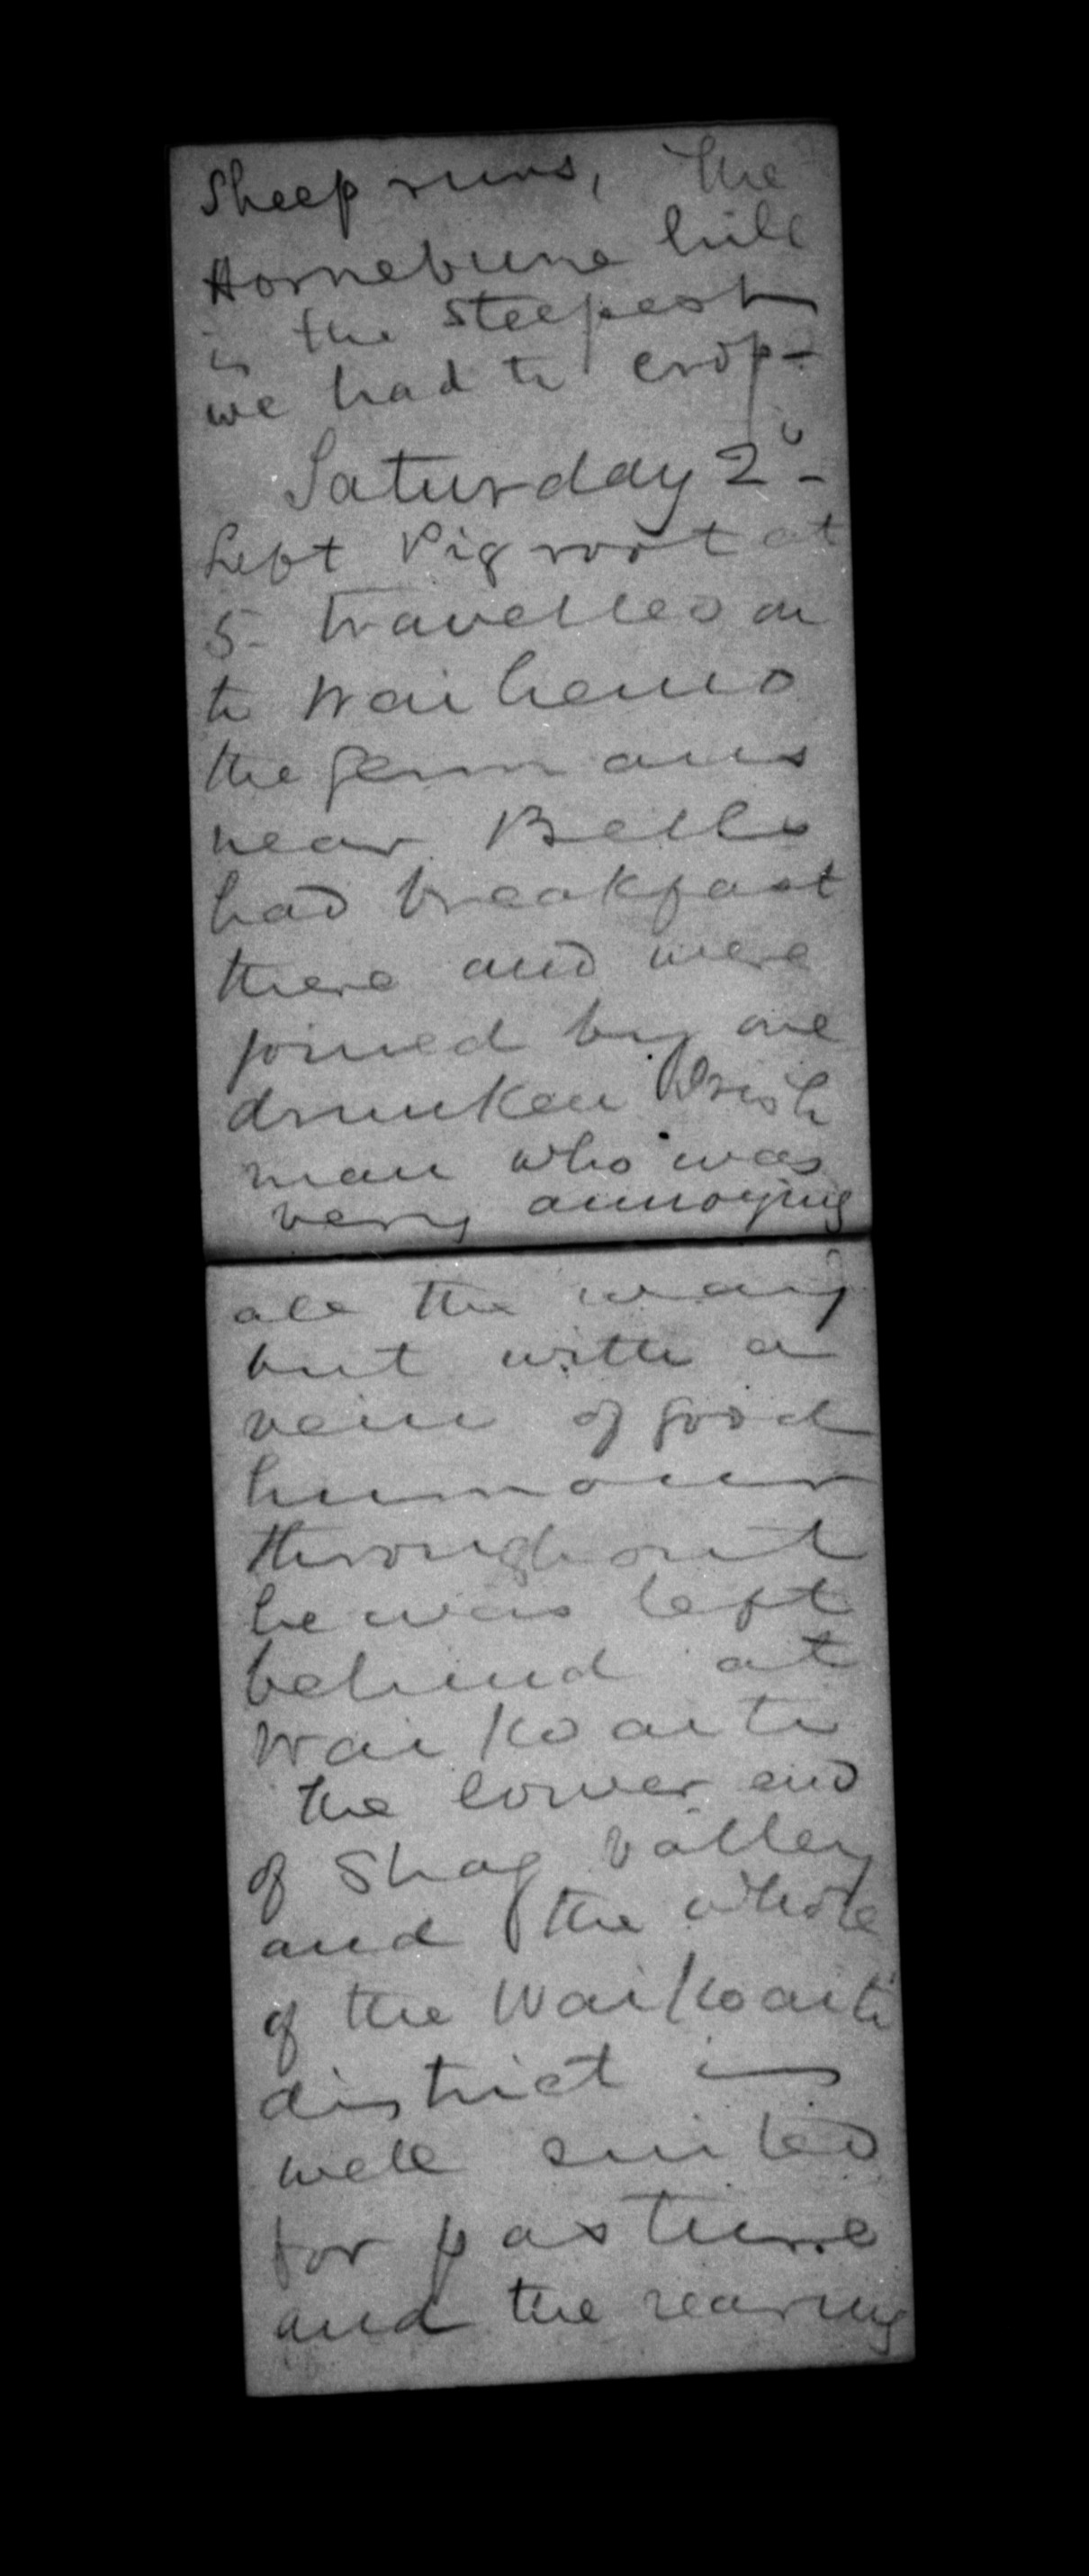 Sheep runs, The
Hornebune hill
is the steepest
we had to crop-
Saturday 2
Left Pigroot at
5- travelled on
to Waihemo
the germans
near Bells
had breakfast
there and were
joined by one
drunken Irish
man who was
very annoying
all the way
but with a
vein of good
humour
throughout
he was left
behind at
Waikoaiti
the lower end
of Shag Valley
and the whole
of the Waikoaiti
district is
well suited
for pasture
and the rearing